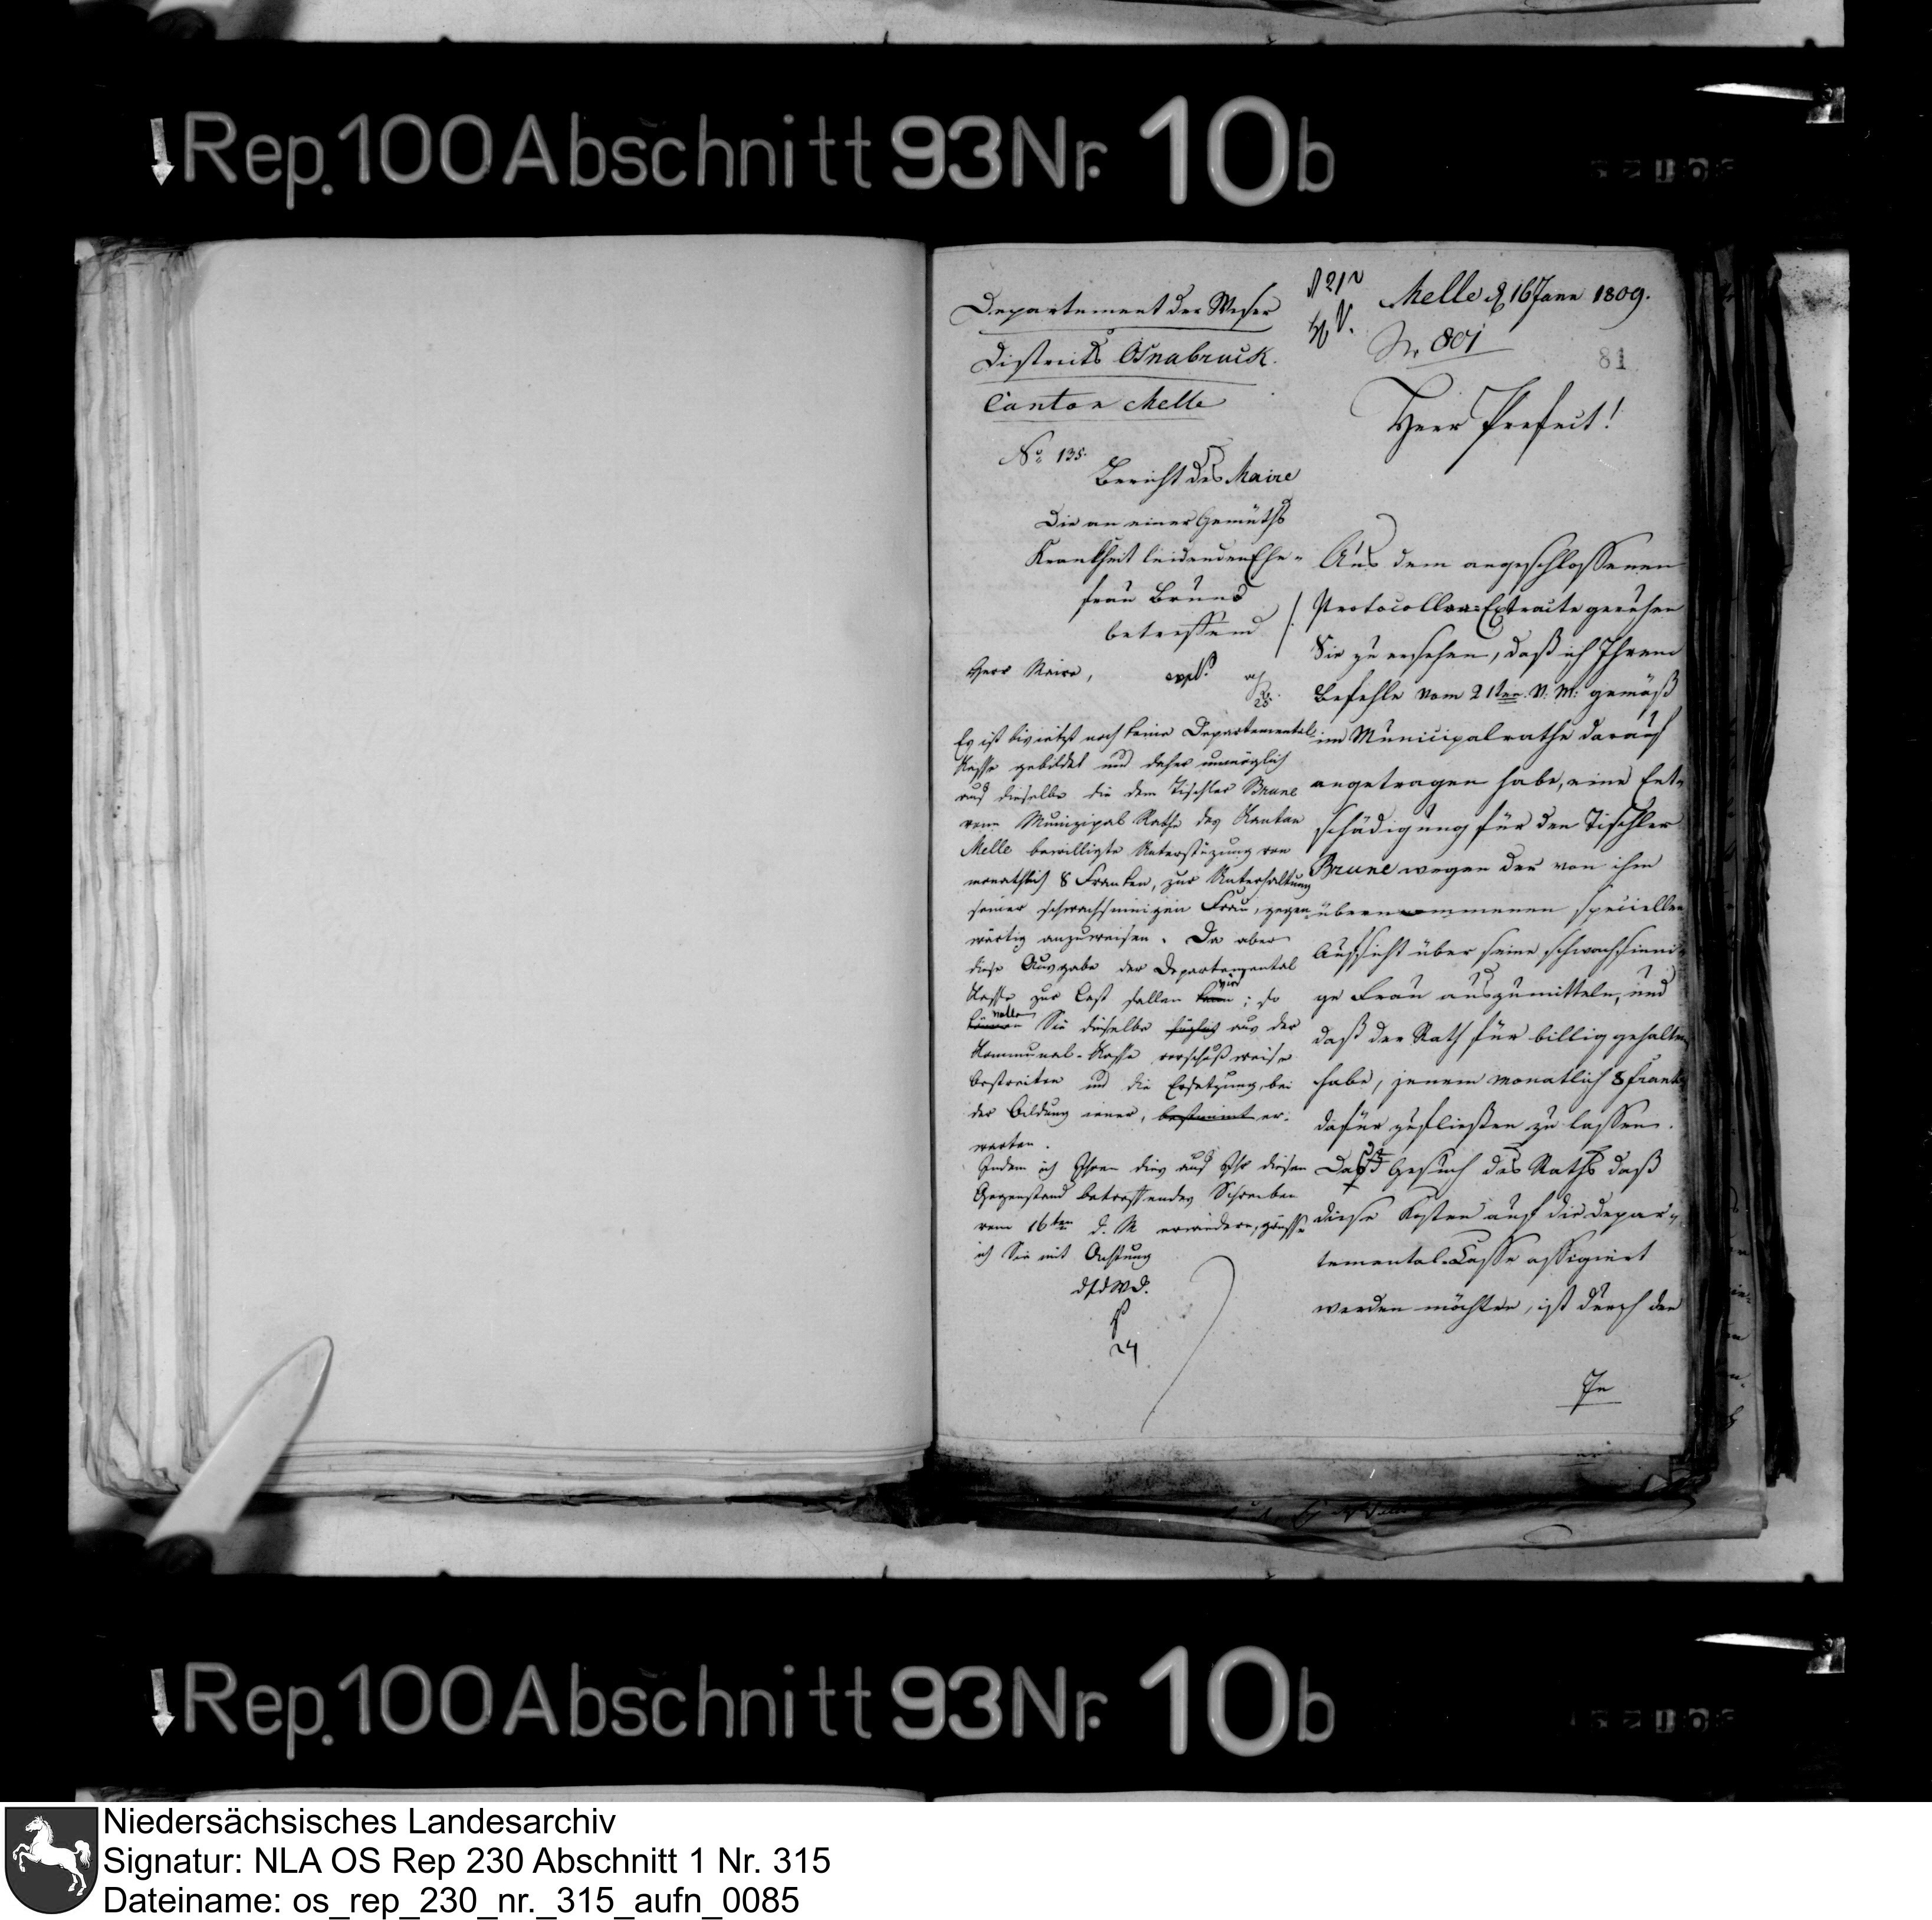 Rep. 100 Abschnitt 93 Nr. 10b
Departement der Weser
Districts Osnabruck.
Canton Melle
No 135.
Bericht des Maire
Die an einer Gemüths
Krankheit leidenden Ehe-
frau Brune
betreffend
Herr Maire,
Es ist bis ietzt noch keine Departemental-
Kasse gebildet und daher unmöglich
auf dieselbe die dem Tischler Brune
vom Munizipal Rathe des Kanton
Melle bewilligte Unterstüzung von
monathlich 8 Franken, zur Unterhaltung
seiner schwachsinnigen Frau, gegen-
wärtig anzuweisen. Da aber
diese Ausgabe der Departemental
Kasse zur Last fallen kann wird; so
können wollen Sie dieselbe füglich aus der
Kommunal-Kasse vorschußweise
bestreiten und die Ersetzung, bei
der Bildung iener, bestimmt er-
warten.
Indem ich Ihnen dies auf Ihr diesen
Gegenstand betreffendes Schreiben
vom 16ten d. M erwiedere, grüsse
ich Sie mit Achtung
24
Melle d 16 Jann 1809.
Nr 801
81
Herr Prefect!
Aus dem angeschlossenen
Protocollar-Extracte geruhen
Sie zu ersehen, daß ich Ihrem
Befehle vom 21ten v. M: gemäß
im Municipalrathe darauf
angetragen habe, eine Ent-
schädigung für den Tischler
Brune wegen der von ihm
übernommenen speciellen
Aufsicht über seine schwachsinni-
ge Frau auszumitteln, und
daß der Rath für billig gehalten
habe, jenem monatlich 8 frank
dafür zufließen zu lassen.
Das Gesuch des Raths daß
diese Kosten auf die Depar-
temental-Casse assigniert
werden möchten, ist durch den
Rep. 100 Abschnitt 93 Nr. 10b
Niedersächsisches Landesarchiv
Signatur: NLA OS Rep 230 Abschnitt 1 Nr. 315
Dateiname: os_rep_230_nr._315_aufn_0085